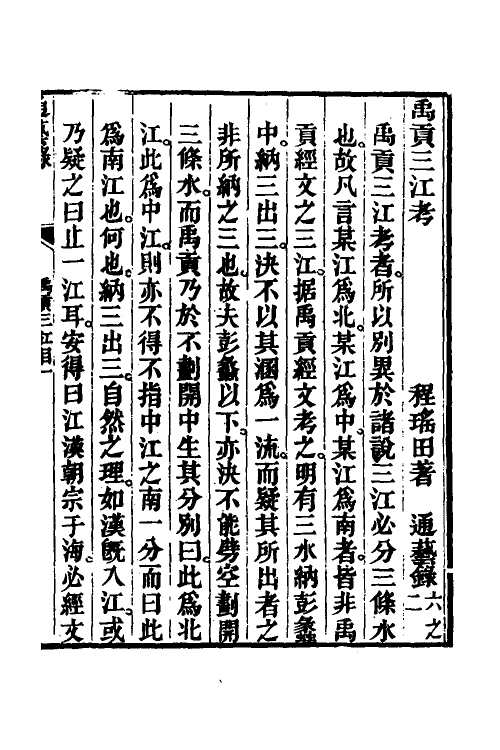 禹貢三江考 程瑤田著 通藝錄六之二
禹貢三江考者。所以別異於諸說三江必分三條水
也。故凡言某江爲北。某江爲中。某江爲南者。皆非禹
貢經文之三江。据禹貢經文考之。明有三水納彭蠡
中。納三出三。決不以其涵爲一流。而疑其所出者之
非所納之三也。故夫彭蠡以下。亦決不能劈空劃開
三條水。而禹貢乃於不劃開中生其分別曰。此爲北
江。此爲中江。則亦不得不指中江之南一分而曰此
爲南江也。何也。納三出三。自然之理。如漢旣入江。或
乃疑之曰止一江耳。安得曰江漢朝宗于海。必經文
禹貢三江目一